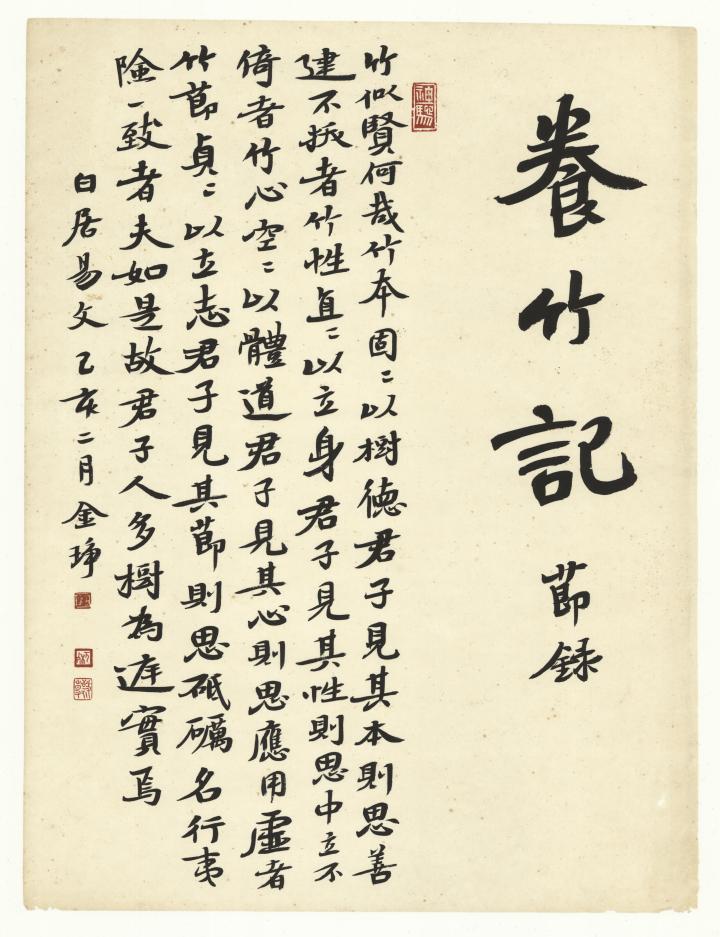 養竹記 節錄
竹似賢何哉竹本固〻以樹德君子見其本則思善
建不拔者竹性直〻以立身君子見其性則思中立不
倚者竹心空〻以體道君子見其心則思應用虛者
竹節貞〻以立志君子見其節則思砥礪名行夷
險一致者夫如是故君子人多樹為庭實焉
白居易文 乙亥二月 金琤